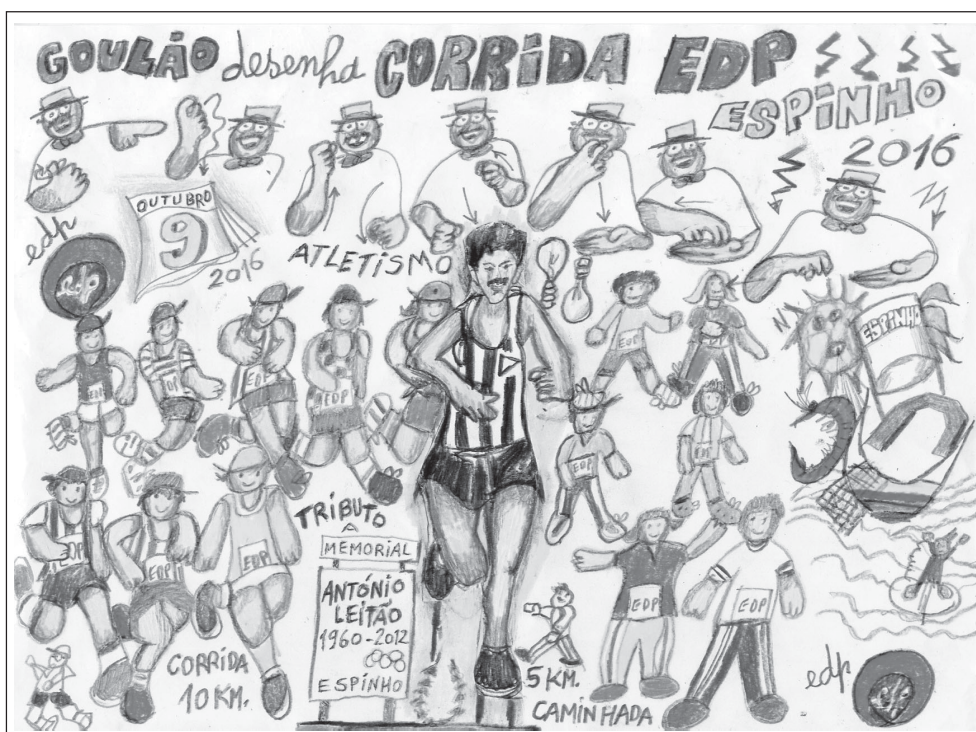 GOULÃO desenha CORRIDA EDP
ESPINHO
2016
OUTUBRO
9
2016
edp
ATLETISMO
ESPINHO
EDP
EDP
EDP
EDP
EDP
EDP
EDP
EDP
EDP
EDP
EDP
EDP
TRIBUTO
A
MEMORIAL
ANTÓNIO
LEITÃO
1960-2012
ESPINHO
CORRIDA
10 KM.
5 KM.
CAMINHADA
edp